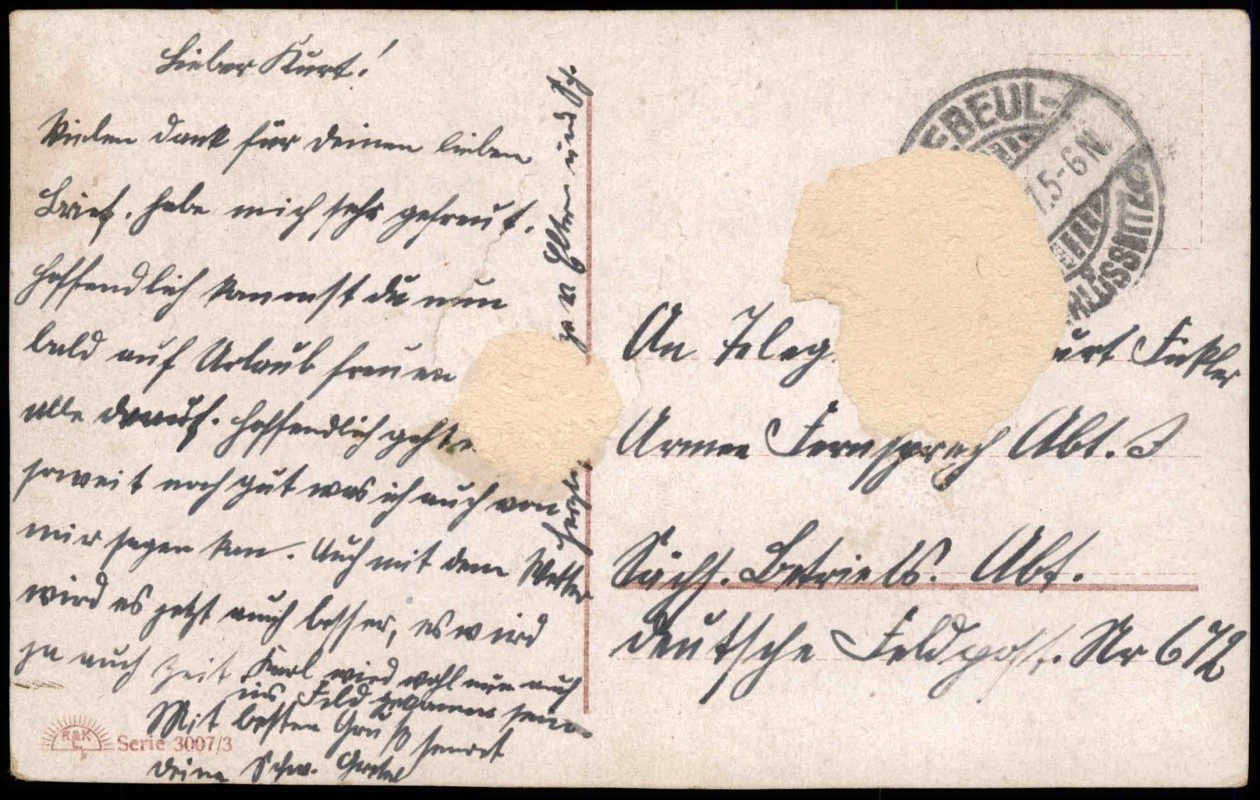 Lieber Kurt!
Vielen dank für deinen lieben
Brief, habe mich sehr gefreut.
Hoffendlich kommst du nun
bald auf Urlaub freuen
alle drauf. Hoffendlich gehts
soweit noch gut was ich auch von
mir sagen kan. Auch mit dem Wetter
wird es jetzt auch besser, es wird
ja auch Zeit Karl wird wohl nun auch
ins Feld gekommen sein
Mit besten Gruß sendet
deine Schw. Gretel
Eltern und
R&K
Serie 3007/3
EBEUL-
5-6N
An Teleg. urt Finkler
Armee Fernsprech Abt. 3
Sächs. Betriebs. Abt.
deutsche Feldpost. Nr 672